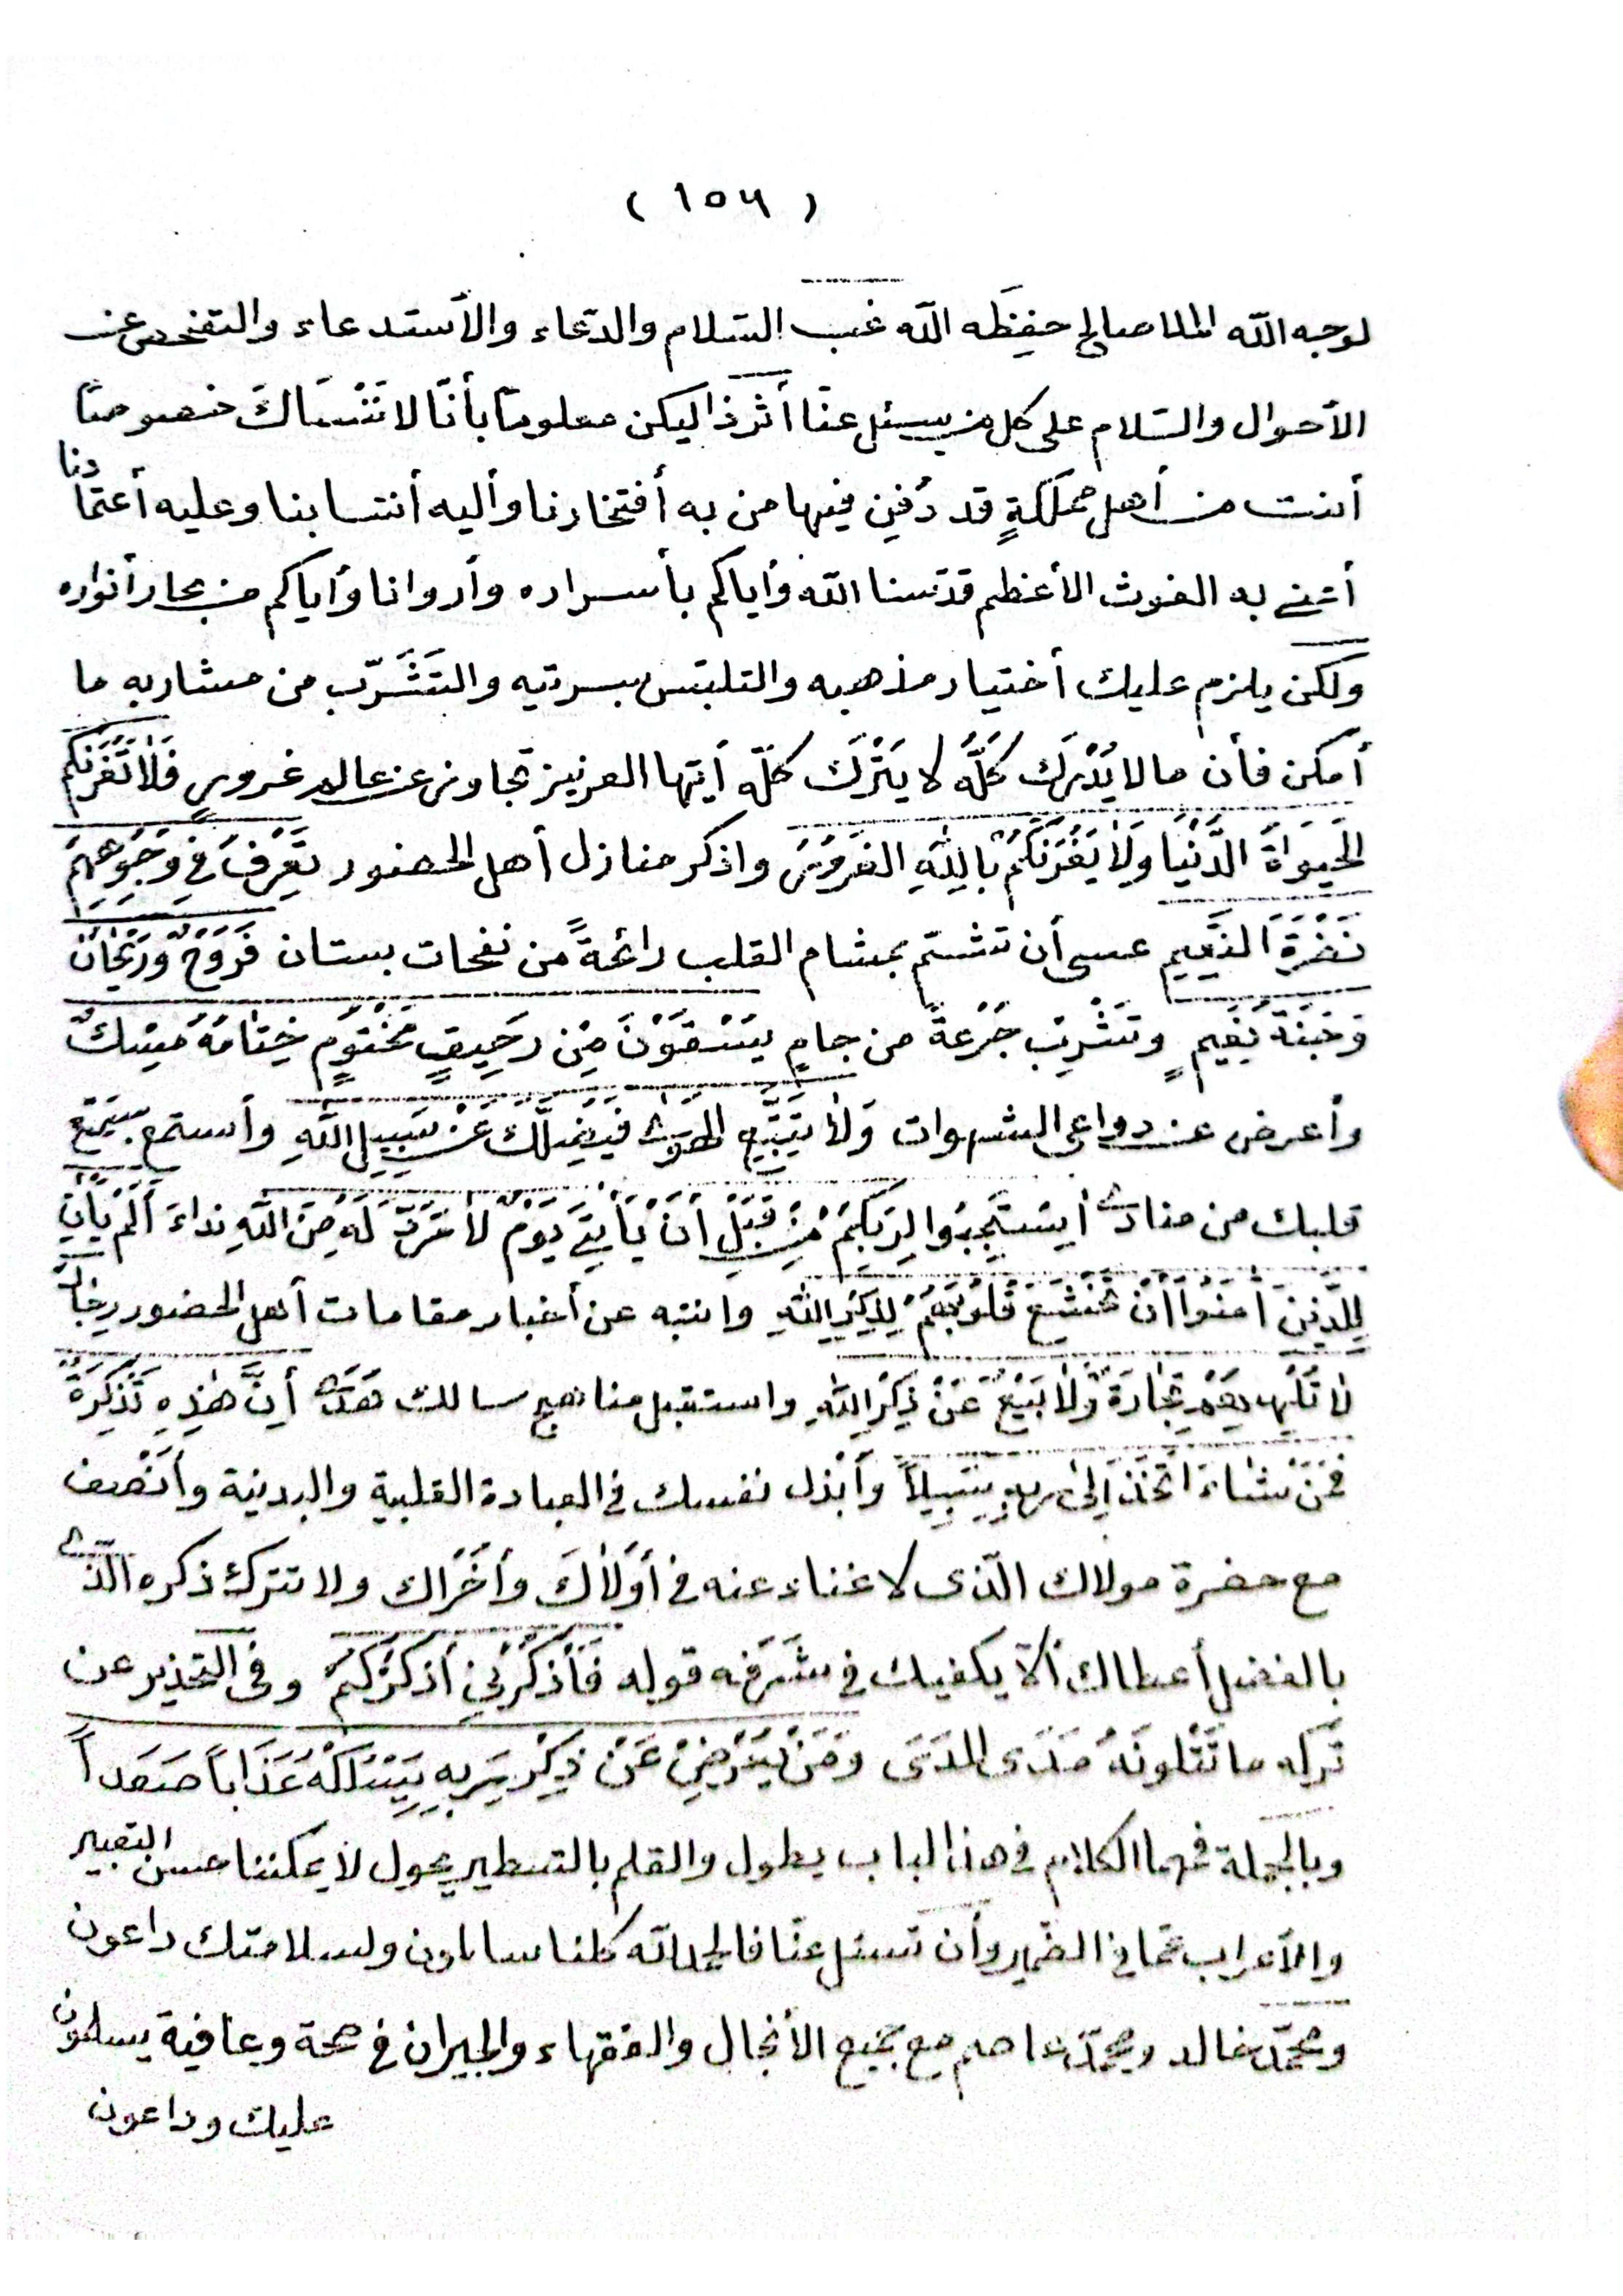 ( ١٥٦ )
لوجه الله الملا صالح حفِظَه الله غب السّلام والدّعاء والأستدعاء والتفحص عن
الأحوال والسّلام على كل من يسئل عنّا أثرذا ليكن معلوماً بأنّا لا نَنْسَاكَ خصوصاً
أنت من أهل مملكةٍ قد دُفِن فيها من به أفتخارنا وأليه أنتسابنا وعليه أعتمادنا
أعني به الغوث الأعظم قدّسنا الله وأياكم بأسراره وأروانا وأياكم من بحار أنواره
ولكن يلزم عليك أختيار مذهبه والتلبّس بسرته والتَشَرّب من مشاربه ما
أمكن فأن ما لا يُدْرَك كلُّه لا يَتْرَك كلّه أيّها العزيز تجاوز عن عالم غرور فَلاٰ تَغُرَّنكُم
الحَيوٰاةُ الدُّنْيٰا وَلاٰ يَغُرَّنكُمْ بِاللهِ الغَرُورُ واذكر منازل أهل الحضور تَعْرِفُ في وُجُوهِهِمْ
نَضْرَةَ النَّعِيمِ عسى أن تشتمّ بمشام القلب رائحةً من نفحات بستان فَرَوْحٌ وَرَيْحٰانٌ
وَجَنّةُ نَعِيمٍ وتَشْرِبَ جُرْعةً من جامِ يُسْقَوْنَ مِنْ رَحِيقٍ مَخْتُومٍ خِتٰامُهُ مِسْكٌ
وأعرض عن دواعي الشهوات وَلاٰ تَتَّبِعِ الهَوىٰ فيُضِلَّكَ عَنْ سَبِيلِ اللهِ وأستمع بسَمْعِ
قلبك من منادى أِسْتَجِيبُوا لِرَبِّكُمْ مِنْ قَبْلِ أنْ يَأْتِيَ يَوْمٌ لاٰ مَرَدَّ لَهُ مِنَ اللهِ نداءَ أَلَمْ يَأْنِ
لِلَّذِينَ آمَنُوا أَنْ تَخْشَعَ قُلُوبُهُمْ لِذِكْرِ اللهِ وانتبه عن أخبار مقامات أهل الحضور رِجٰالٌ
لاٰ تُلْهِيهِمْ تِجٰارَةٌ وَلاٰ بَيْعٌ عَنْ ذِكْرِ اللهِ واستقبل مناهج سالك هُدىً أِنَّ هٰذِهِ تَذْكِرَةٌ
فَمَنْ شٰاءَ اتَّخَذَ إِلىٰ رَبِّهِ سَبِيلاً وأَبْذل نفسك في العبادة القلبية والبدنية وأَنْصِف
مع حضرة مولاك الّذى لا غناء عنه في أُولاٰكَ وأُخْرٰاك ولا تترك ذكره الّذى
بالفضل أعطاك ألا يكفيك في شَرَفه قوله فَأذْكُرُنِي أذكرْكُمْ وفى التحذير عن
تَركِه ما تَتْلونَهُ مَدَى المدَى وَمَنْ يُعْرِضْ عَنْ ذِكْرِ رَبِهِ يَسْلُكْهُ عَذَاباً صَعَداً
وبالجملة فهما الكلام في هذا الباب يطول والقلم بالتسطير يجول لا يمكننا حسن التعبير
والأعراب عمّا في الضمير وأن تسئل عنّا فالحمد لله كلنا سالمون ولسلامتك داعون
ومحمّد خالد ومحمّد عاصم مع جميع الأنجال والفقهاء والجيران في صحة وعافية يسلمون
عليك وداعون